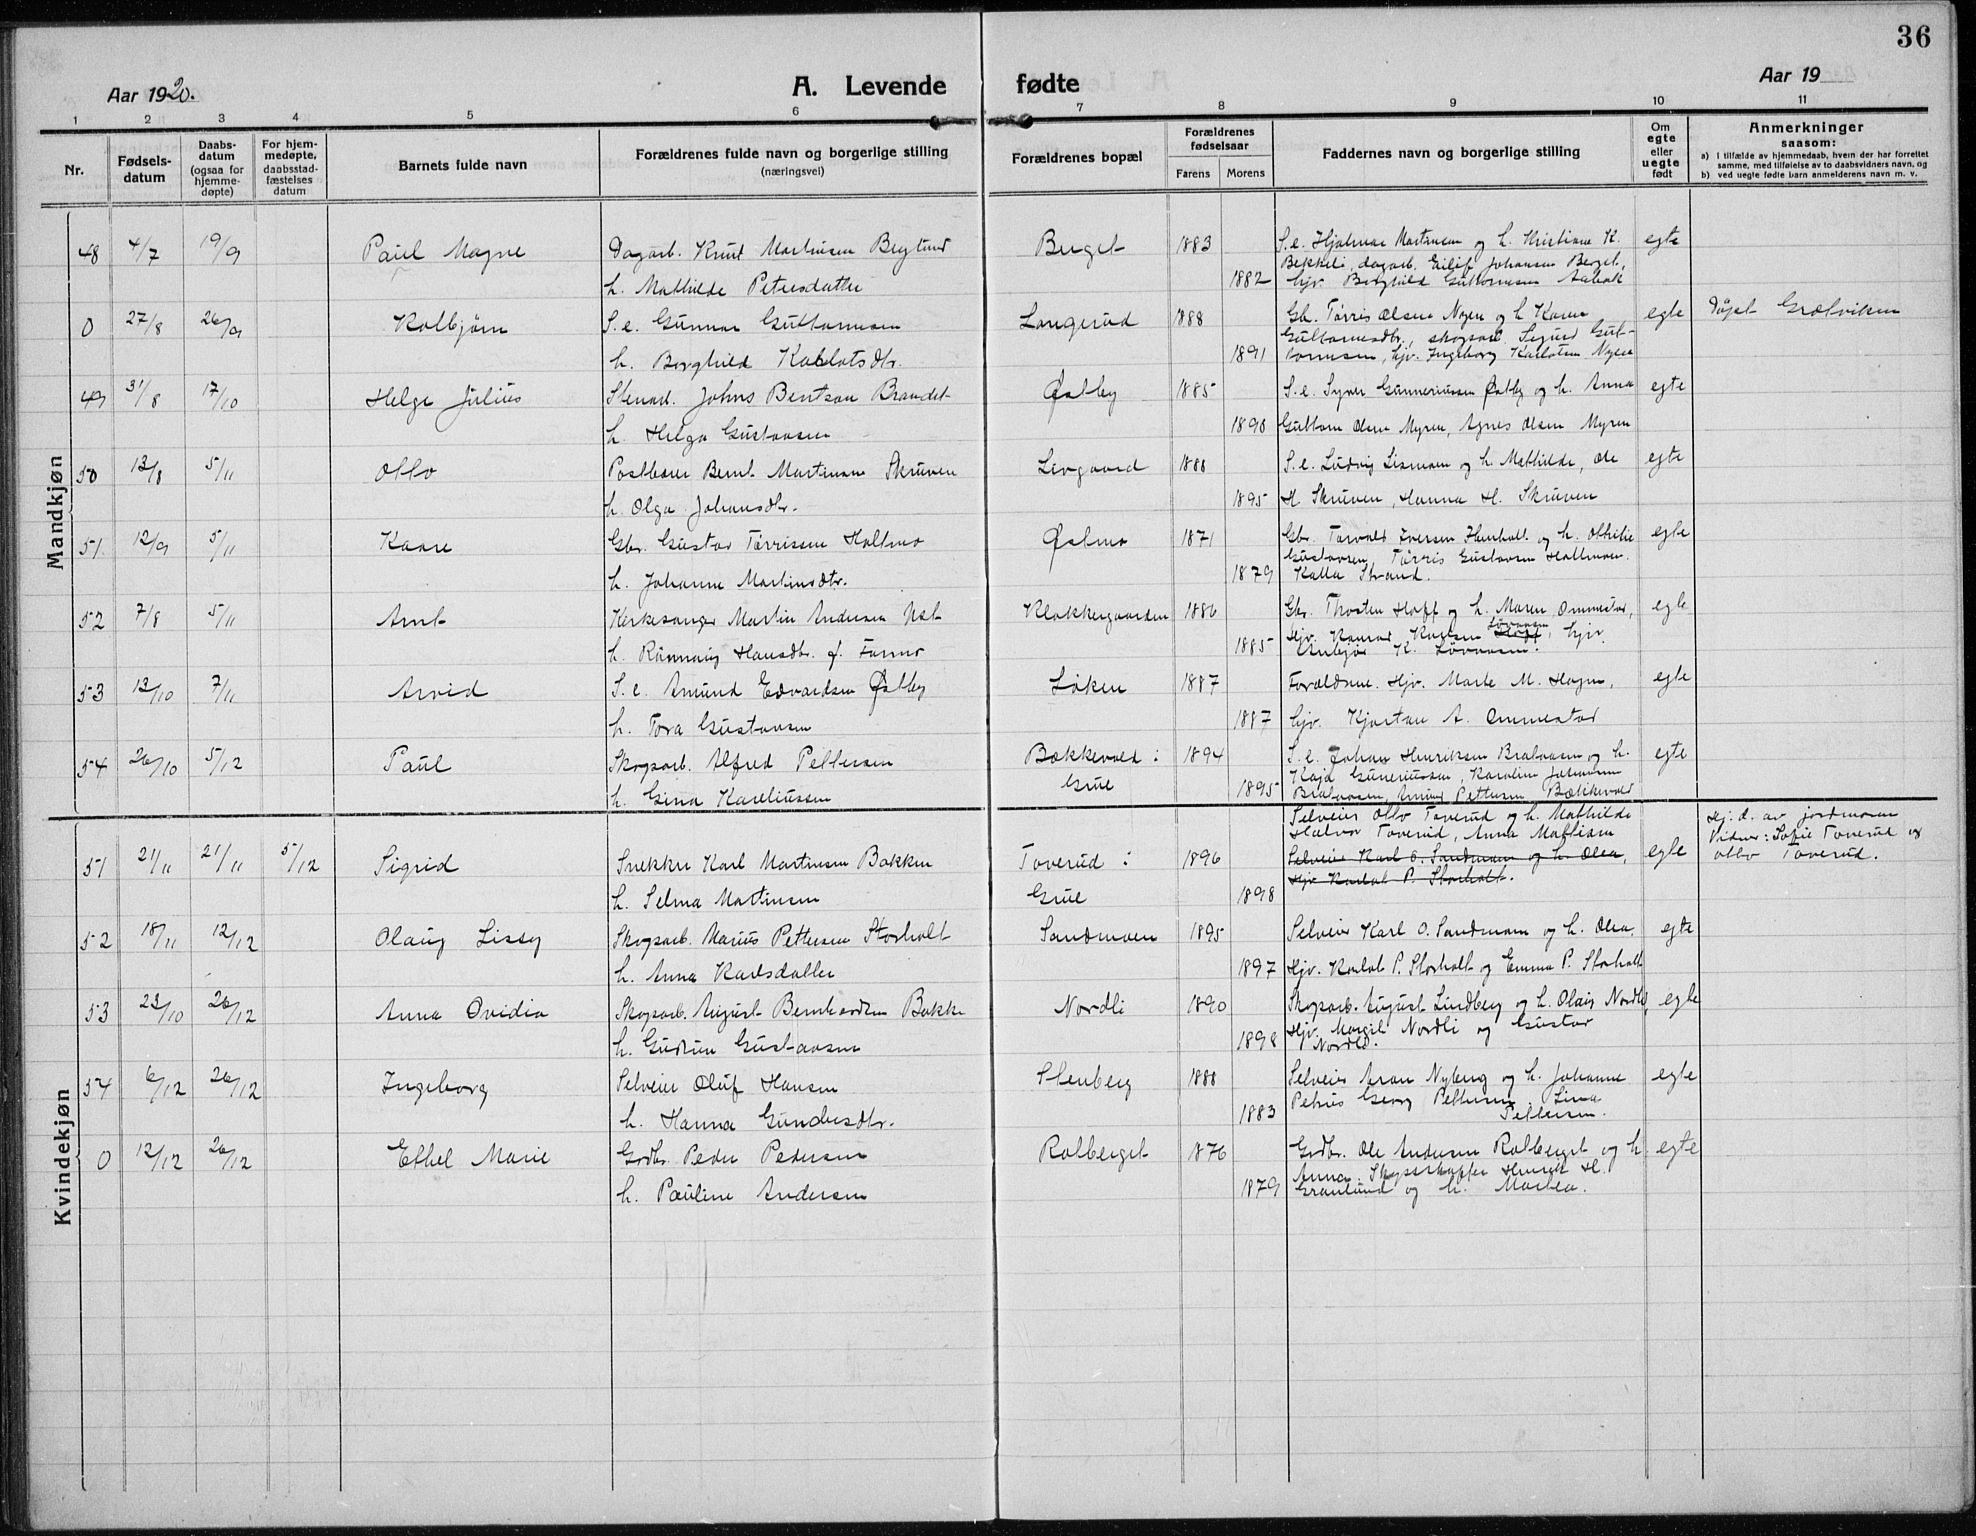 36
Aar 1920.
A. Levende
fødte
Aar 19
1 2 3 4 5 6 7 8 9 10 11
Nr.
Fødsels-
datum
Daabs-
datum
(ogsaa for
hjemme-
døpte)
For hjem-
medøpte,
daabsstad-
fæstelses
datum
Barnets fulde navn
Forældrenes fulde navn og borgerlige stilling
(næringsvei)
Forældrenes bopæl
Forældrenes
fødselsaar
Farens Morens
Faddernes navn og borgerlige stilling
Om
egte
eller
uegte
født
Anmerkninger
saasom:
a) i tilfælde av hjemmedaab, hvem der har forrettet
samme, med tilføielse av to daabsvidners navn, og
b) ved uegte fødte barn anmelderens navn m. v.
Mandkjøn
48 4/7 19/9 Paul Magne Dagarb. Knut Martinsen Berglund Berget 1883 S.e. Hjalmar Martinsen og h. Kristiane K. egte
Bekkeli, dagarb. Eilif Johansen Berget,
h. Mathilde Petersdatter 1882 hjv. Borghild Guttormsen
0 27/8 26/9 Kolbjørn S.e. Gunnar Guttormsen Langerud 1888 Gb. Tørris Olsen Nyen og h. Karen egte Døpt Grætviken
Guttormsdtr., skogsarb. Sigurd Gut-
h. Borghild Karlotsdtr. 1891 tormsen, hjv. Ingeborg Karlotsen Nyen
49 31/8 17/10 Helge Julius Stenarb. Johns Bentsen Brandet Østby 1885 S.e. Syver Gunneriussen Østby og h. Anna egte
h. Helga Gustavsen 1890 Guttorm Olsen Myren, Agnes Olsen Myren
50 13/8 5/11 Otto Postbærer Bernt Martinsen Skruven Levgaard 1888 S.e. Ludvig Simensen og h. Mathilde, Ole egte
h. Olga Johansdtr. 1895 H. Skruven, Hanna H. Skruven
51. 12/9 5/11 Kaare Gbr. Gustav Tørrissen Holtmo Østmo 1871 Gbr. Torvald Iversen og h. Othilie egte
Gustavsen, Tørris Gustavsen Holtmoen.
h. Johanne Martinsdtr. 1879 Kalla Strand.
52 7/8 5/11 Arnt Kirkesanger Martin Andersen Klokkergaarden 1886 Gbr. Thosten Hoff og h. Maren Ommestad, egte
Løvaasen
Hjv. Konrad Karlsen Hoff, hjv.
h. Rønnaug Hansdtr. f. Farmo 1885 K. Løvaasen.
53 13/10 7/11 Arvid S.e. Amund Edvardsen Østby Løken 1887 Forældrene. Hjv. Marte M. Hagen, egte
h. Tora Gustavsen 1887 hjv. Kjartan A. Ommestad
54 26/10 5/12 Paul Skogsarb. Alfred Pettersen Bækkevold i 1894 S.e. Johan Henriksen Bralaasen og h. egte
Kaja Guneriussen, Karoline Johansen
h. Gina Kareliussen Grue 1895 Bralaasen, Amund Pettersen Bækkevold
Kvindekjøn
Selveier Otto Toverud og h. Mathilde Hj. d. av jordmoren
Halvor Toverud, Anna Mathisen Vidner: Sofie Toverud og
51 21/11 21/11 5/12 Sigrid Snekker Karl Martinsen Bakken Toverud i 1896 Selveier Karl O. Sandmoen og h. Olea, egte Otto Toverud.
Hjv Karlot P. Storholt.
h. Selma Martinsen Grue 1898
52 18/11 12/12 Olaug Lissy Skogsarb. Marius Pettersen Storholt Sandmoen 1895 Selveier Karl O. Sandmoen og h. Olea, egte
h. Anna Karlsdatter 1897 Hjv. Karlot P. Storholt og Emma P. Storholt
53 23/10 26/12 Anna Ovidia Skogsarb. August Bernhardsen Bakke Nordli 1890 Skogsarb. August Lindberg og h. Olaug Nordli, egte
Hjv. Margit Nordli og Gustav
h. Gudrun Gustavsen 1898 Nordli.
54 6/12 26/12 Ingeborg Selveier Oluf Hansen Stenberg 1888 Selveier Aron Nyberg og h. Johanne egte
Petrus Georg Pettersen. Lina
h. Hanna Gundersdtr. 1883 Pettersen.
0 12/12 26/12 Ethel Marie Grdbr. Peder Pedersen Rotberget 1876 Grdbr. Ole Andersen Rotberget og h egte
Anna. Skysskaffer Henrik H.
h. Pauline Andersen 1879 Granlund og h. Martea.